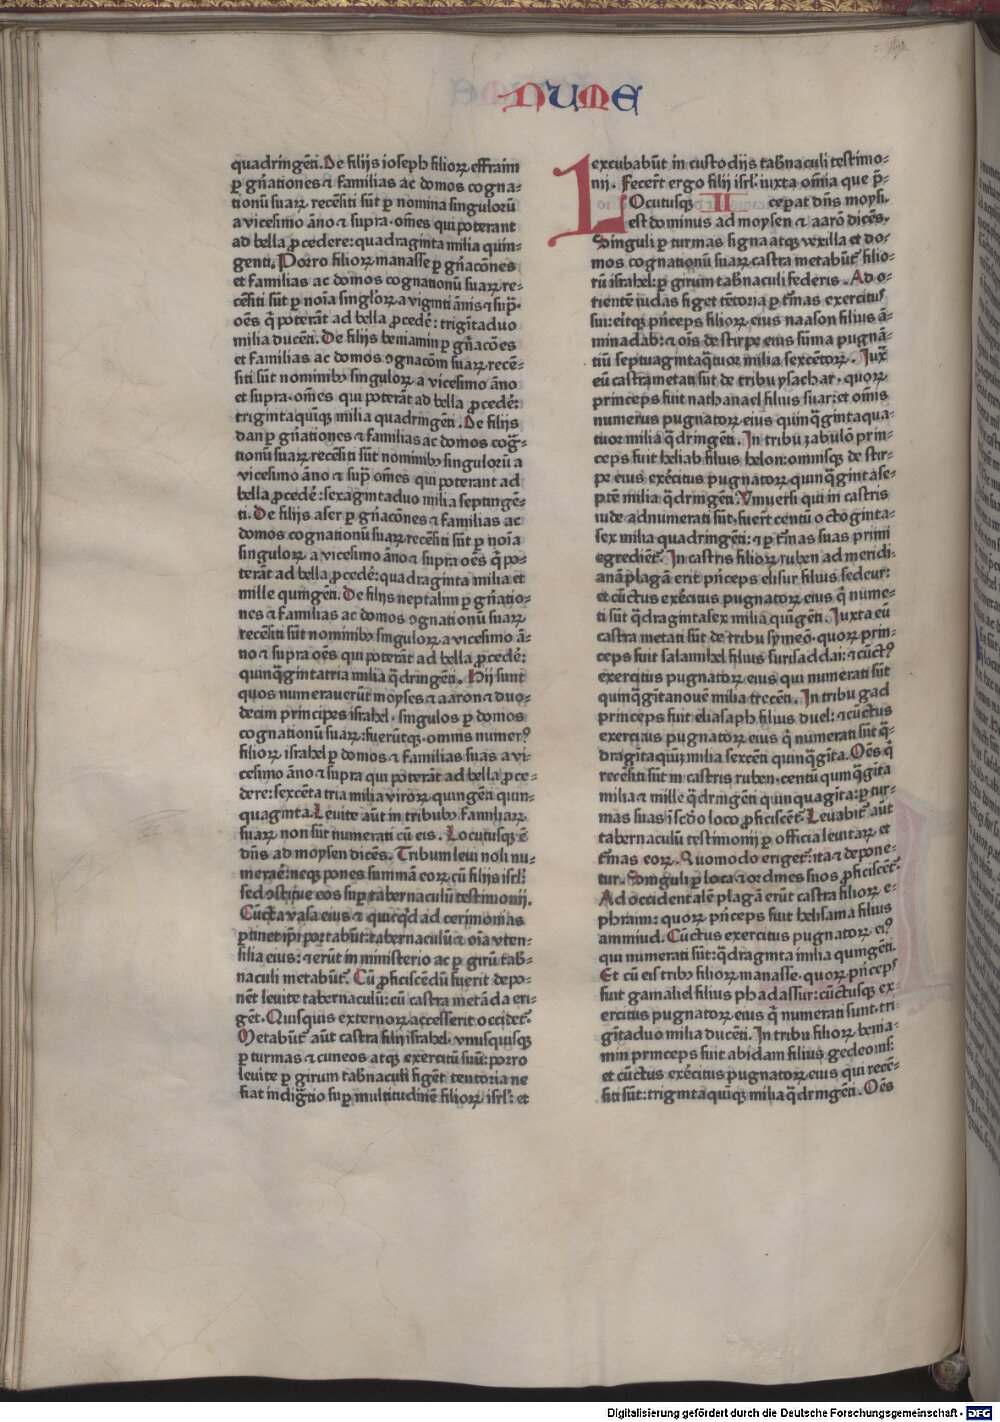 NUME
quadringēti. De filijs ioseph filioꝝ effraim
ꝑ gn̄ationes ⁊ familias ac domos cogna⸗
tionū suaꝝ recēsiti sūt ꝑ nomina singulorū
a vicesimo āno ⁊ supra· om̄es qui poterant
ad bella ꝓcedere: quadraginta milia quin⸗
genti. Porro filioꝝ manasse ꝑ gn̄acōnes
et familias ac domos cognationū suaꝝ re⸗
cēsiti sūt ꝑ noīa singl'oꝝ a viginti ānis ⁊ sup̄·
oēs q̄ poterāt ad bella ꝓcedē: trigītaduo
milia ducēti. De filijs beniamin ꝑ gn̄acōes
et familias ac domos ꝯgnacōm suaꝝ recē⸗
siti sūt nominibꝫ singuloꝝ a vicesimo āno
et supra· om̄es qui poterāt ad bella ꝓcedē:
trigintaquīqꝫ milia quadringēti. De filijs
dan ꝑ gn̄ationes ⁊ familias ac domos coḡ⸗
tionū suaꝝ recēsiti sūt nominibꝫ singulorū a
vicesimo āno ⁊ sup̄ om̄es qui poterant ad
bella ꝓcedē: sexagintaduo milia septingē⸗
ti. De filijs aser ꝑ gn̄acōnes ⁊ familias ac
domos cognationū suaꝝ recēsiti sūt ꝑ noīa
singuloꝝ a vicesimo āno ⁊ supra oēs q̄ po⸗
terāt ad bella ꝓcedē: quadraginta milia et
mille quingēti. De filijs neptalim ꝑ gn̄atio⸗
nes ⁊ familias ac domos ꝯgnationū suaꝝ
recēsiti sūt nominibꝫ singuloꝝ a vicesimo ā⸗
no ⁊ supra oēs qui poterāt ad bella ꝓcedē:
quinq̄gintatria milia q̄dringēti. Hij sunt
quos numerauerūt moyses ⁊ aaron ⁊ duo⸗
decim principes israhel· singulos ꝑ domos
cognationū suaꝝ: fuerūtqꝫ· omnis numerꝰ
filioꝝ israhel ꝑ domos ⁊ familias suas a vi⸗
cesimo āno ⁊ supra qui poterāt ad bella ꝓce⸗
dere: sexcēta tria milia viroꝝ quingēti quin⸗
quaginta. Leuite aūt in tribubꝫ familiaꝝ
suaꝝ non sūt numerati cū eis. Locutusqꝫ ē
dn̄s ad moysen dicēs. Tribum leui noli nu⸗
merare: neqꝫ pones summam eoꝝ cū filijs isrl':
sed ꝯstitue eos suꝑ tabernaculū testimonij.
Cūcta vasa eius ⁊ quicq̄d ad cerimonias
ꝑtinet ip̄i portabūt: tabernaculū ⁊ oīa vten⸗
silia eius: ⁊ erūt in ministerio ac ꝑ girū tab̄⸗
naculi metabūt̉. Cū ꝓficiscēdū fuerit depo⸗
nēt leuite tabernaculū: cū castra metāda eri⸗
gēt. Quisquis externoꝝ accesserit occidet̉.
Metabūt̉ aūt castra filij israhel· vnusquisqꝫ
ꝑ turmas ⁊ cuneos atqꝫ exercitū suū: porro
leuite ꝑ girum tab̄naculi figēt tentoria ne
fiat indiḡtio suꝑ multitudinē filioꝝ isrl': et
excubabūt in custodijs tab̄naculi testimo⸗
nij. Fecer̄t ergo filij isrl' iuxta om̄ia que p̄⸗
LOcutusqꝫ II ceperat dn̄s moysi.
est dominus ad moysen ⁊ aarō dicēs.
Singuli ꝑ turmas signa atqꝫ vexilla et do⸗
mos cognationū suaꝝ castra metabūt̉ filio⸗
rū israhel: ꝑ girum tab̄naculi federis. Ad o⸗
rientē iudas figet tētoria ꝑ t̉mas exercitus
sui: eitqꝫ prīceps filioꝝ eius naason filius ā⸗
minadab: ⁊ oīs de stirpe eius sūma pugnā⸗
tiū septuagintaq̄tuor milia sexcētoꝝ. Iux̄
eū castrametati sūt de tribu ysachar· quoꝝ
princeps fuit nathanael filius suar: et omīs
numerus pugnatoꝝ eius quinq̄gintaqua⸗
tuor milia q̄dringēti. In tribu zabulō prin⸗
ceps fuit heliab filius helon: omnisqꝫ de stir⸗
pe eius exercitus pugnatoꝝ quinq̄gintase⸗
ptē milia q̄dringēti. Vniuersi qui in castris
iude adnumerati sūt· fuer̄t centū octoginta⸗
sex milia quadringēti: ⁊ ꝑ t̉mas suas primi
egredient̉. In castris filioꝝ ruben ad meridi⸗
anā plagā erit prīceps elisur filius sedeur:
et cūctus exercitus pugnatoꝝ eius q̄ nume⸗
ti sūt q̄dragintasex milia quīgēti. Iuxta eū
castra metati sūt de tribu symeō· quoꝝ prin⸗
ceps fuit salamihel filius surisaddai: ⁊ cūctꝰ
exercitus pugnatoꝝ eius qui numerati sūt
quinq̄gītanouē milia trecēti. In tribu gad
princeps fuit eliasaph filius duel: ⁊ cūctus
exercitus pugnatoꝝ eius q̄ numerati sūt q̄⸗
dragītaquīqꝫ milia sexcēti quinq̄gīta. Oēs q̄
recēsiti sūt in castris ruben· centū quinq̄gīta
milia ⁊ mille q̄dringēti quinquagīta: ꝑ tur⸗
mas suas ī scd̄o loco ꝓficiscēt̉. Leuabit̉ aūt
tabernaculū testimonij ꝑ officia leuitaꝝ et
t̉mas eoꝝ. Quomodo eriget̉: ita ⁊ depone⸗
tur. Singuli ꝑ loca ⁊ ordines suos ꝓficiscēt̉.
Ad occidentalē plagā erūt castra filioꝝ e⸗
phraim: quoꝝ prīceps fuit helisama filius
ammiud. Cūctus exercitus pugnatoꝝ eiꝰ
qui numerati sūt: q̄draginta milia quingēti.
Et cū eis tribꝰ filioꝝ manasse· quoꝝ prīceps
fuit gamaliel filius phadassur: cūctusqꝫ ex⸗
ercitus pugnatoꝝ eius q̄ numerati sunt· tri⸗
gītaduo milia ducēti. In tribu filioꝝ benia⸗
min princeps fuit abidam filius gedeonis:
et cūctus exercitus pugnatoꝝ eius qui recē⸗
siti sūt: trigintaquīqꝫ milia q̄dringēti. Oēs
Digitalisierung gefördert durch die Deutsche Forschungsgemeinschaft - DFG